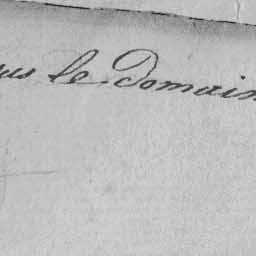 us le Domain